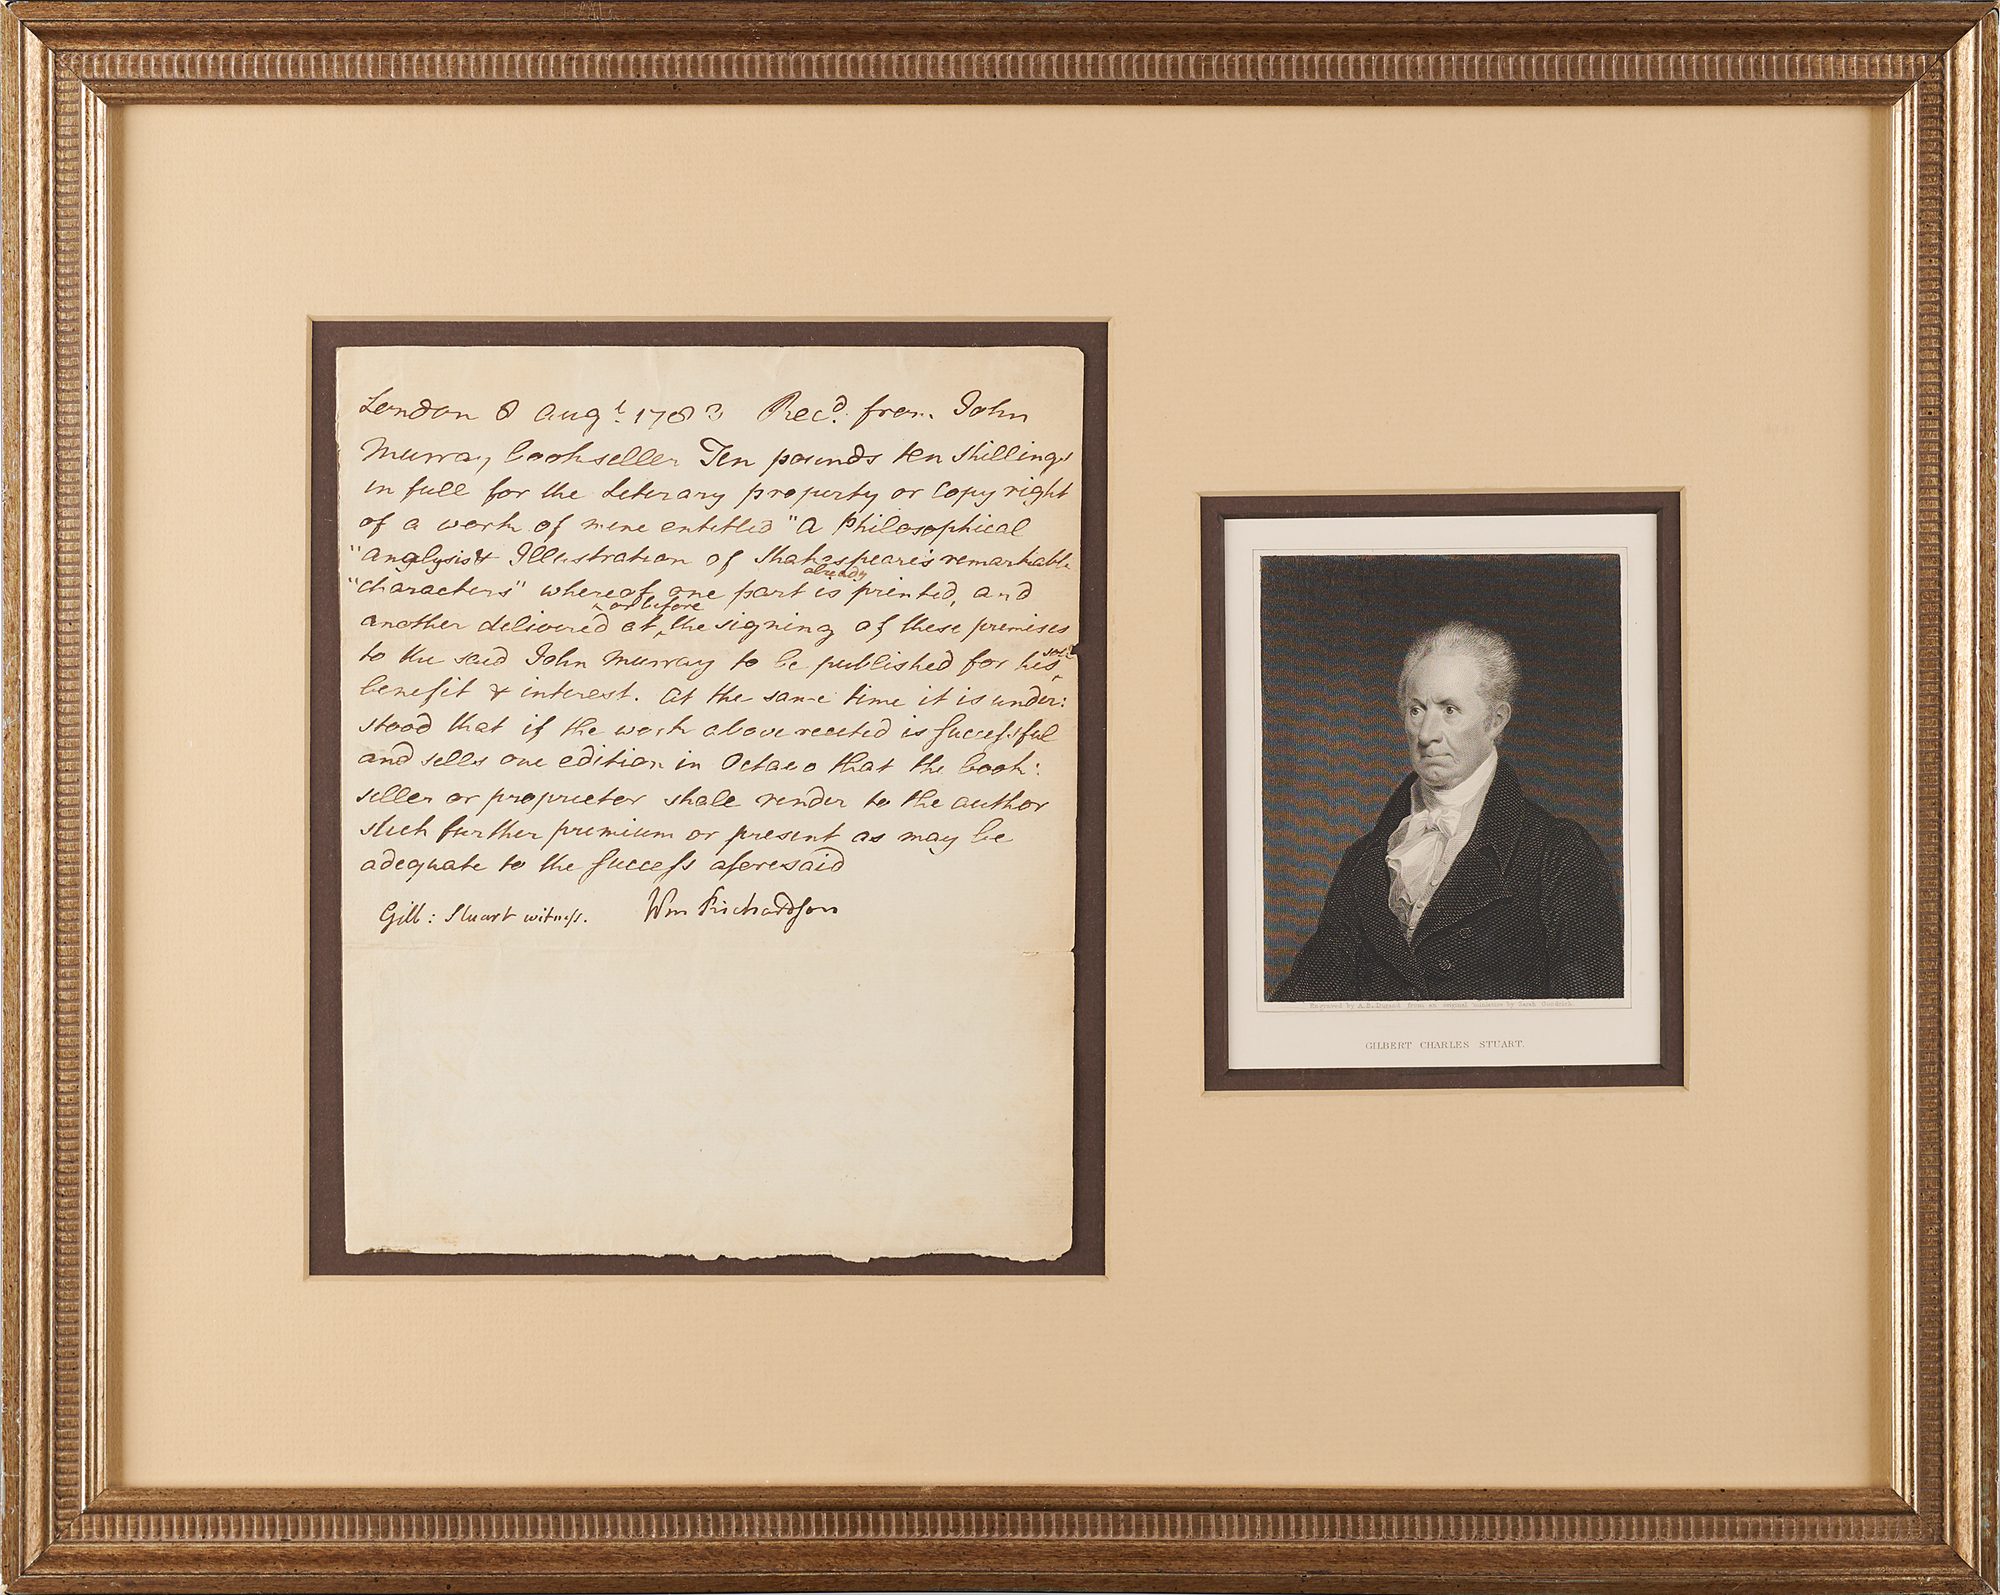 London 8 Augt. 1783 Recd. from John
Murray bookseller Ten pounds ten shillings
in full for the Literary property or Copy right
of a work of mine entitled "A Philosophical
"Analysis & Illustration of Shakespeare's remarkable
already
"Characters" whereof one part is printed, and
or before
another delivered at the signing of these premises
to the said John Murray to be published for his sole
benefit & interest. At the same time it is under:
stood that if the work above recited is successful
and sells one edition in Octavo that the book:
seller or proprietor shall render to the author
such further premium or present as may be
adequate to the success aforesaid
Gilb: Stuart witness. Wm Richardson
Engraved by A.B. Durand from an original miniature by Sarah Goodrich.
GILBERT CHARLES STUART.